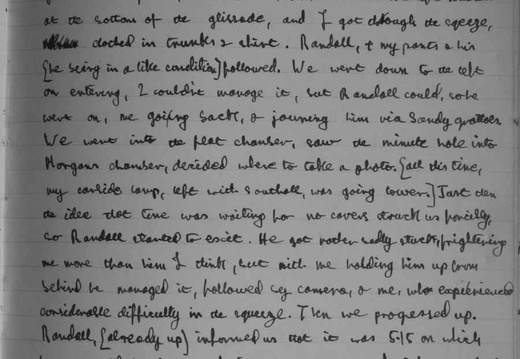 at the bottom of the glissade, and I got through the sqeeze,
clothed in trunks & shirt. Randall, & my pants & his
[he being in a like condition] followed. We went down to the left
on entering, I couldn't manage it, but Randall could, so he
went on, me going back, & journing him via Sandy grotto.
We went into the flat chamber, saw the minute hole into
Morgans chamber, decided where to take a photo. [all this time,
my carbide lamp, left with Southall, was going lower.] Just then
the idea that time was waiting for no cavers struck us forcibly,
so Randall started to exit. He got rather sadly stuck, frightening
me more than him I think, but with me holding him up from
behind he managed it, followed by camera, & me, who experienced
considerable difficulty in the squeeze. Then we progressed up.
Randall, [already up] informed us that it was 5.15 on which